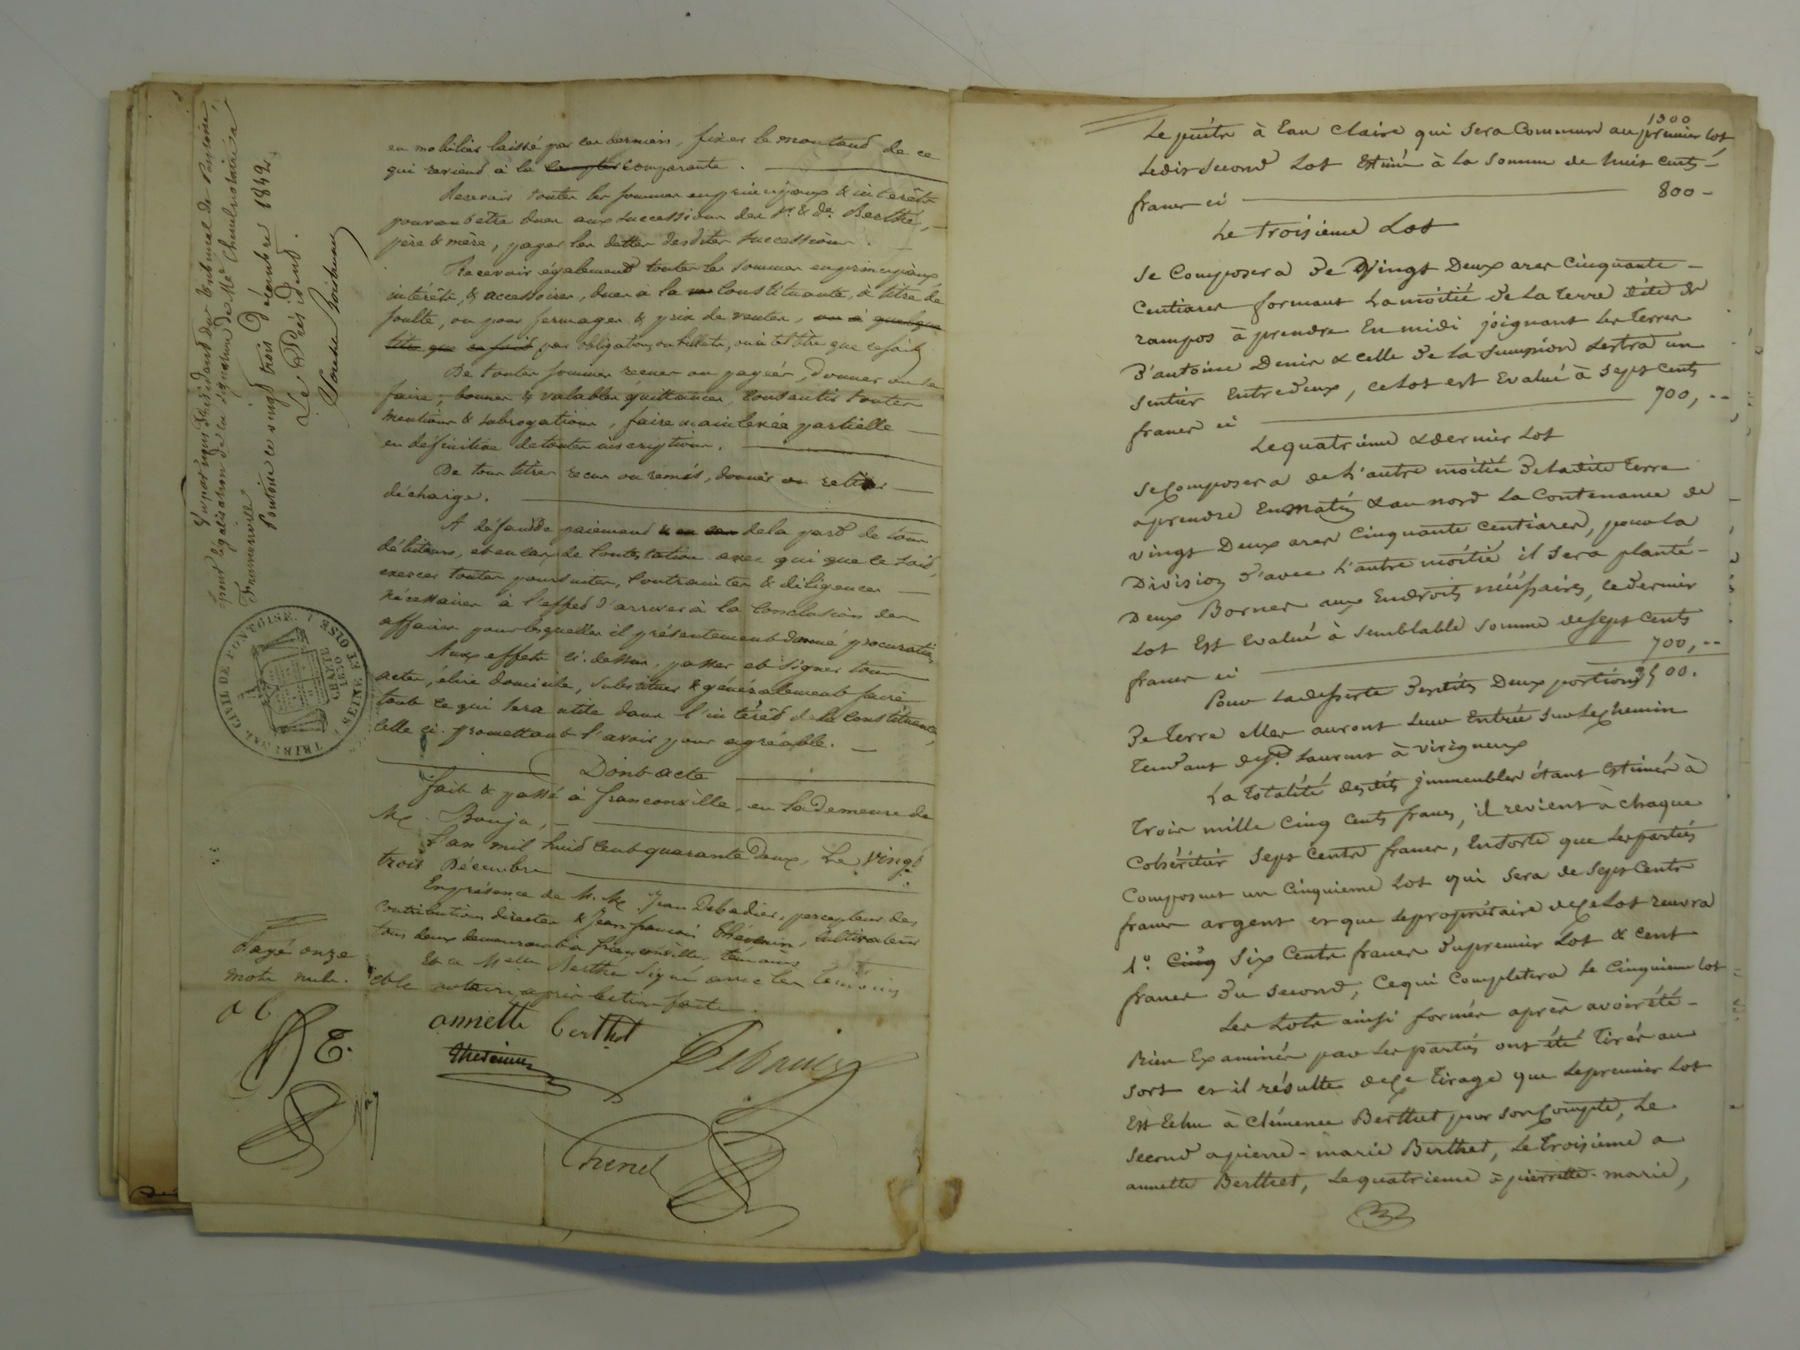 Vu par nous Président du tribunal de Pontoise,
pour légalisation de la signature de Me Chenel notaire à
Franconville
Pontoise ce vingt trois Décembre 1842.
Le Président.
TRIBUNAL CIVIL DE PONTOISE. (SEINE ET OISE)
CHARTE
1830
en mobilier laissé par ces derniers, fixer le montant de ce
qui revient à la comparante.
Recevoir toutes les sommes en principaux & intérêts
pouvant être dues aux successions des Sr. & De. Berthé,
père & mère, payer les dettes desdites successions.
Recevoir également toutes les sommes en principaux
intérêts, & accessoires, dues à la constituante, à titre de
soulte, ou pour fermages & prix de ventes, ou à quelque
titre que ce soit par obligations, ou billets, ou à tel titre que ce soit,
De toutes sommes reçues ou payées, donner ou se
faire, bonnes & valables quittances, consentir toutes
mentions & subrogations, faire mainlevée partielle
ou définitive de toutes inscriptions.
De tous titres reçus ou remis, donner ou retirer
décharges.
A défaut de paiement de la part de tous
débiteurs, et en cas de contestation avec qui que ce soit,
exercer toutes poursuites, contraintes & diligences
nécessaires à l'effet d'arriver à la conclusion des
affaires pour lesquelles il présentement donné procuration
Aux effets ci-dessus, passer et signer tous
actes, élire domicile, substituer & généralement faire
tout ce qui sera utile dans l'intérêt de la constituante,
celle ci promettant l'avoir pour agréable.
Dont acte
fait & passé à franconville, en la demeure de
Me. Bouja,
L'an mil huit cent quarante deux, Le vingt
trois Décembre
En présence de M.M. Jean Debadier, percepteur des
contributions directes & Jean françois Thévenin, cultivateur
tous deux demeurant à franconville, témoins
Et a Melle Berthé signé avec les témoins
et le notaire, après lecture faite.
Rayé onze
mots nuls.
a b
annette berthet
thevenin
Chenel
1900
Le puits à Eau claire qui sera Commun au premier lot
Ledit second Lot Estimé à la somme de huit cents
francs ci 800 -
Le troisieme Lot
Se Composera de Vingt Deux ares Cinquante
Centiares formant La moitié de La terre dite de
rampos à prendre En midi joignant Les terres
D'antoine Denis & celle de La sumpsion Lestra un
sentier Entredeux, ce lot est Evalué à sept cents
francs ci 700, --
Le quatrieme & dernier Lot
Se Composera de L'autre moitié De ladite terre
aprendre En matin & au nord La Contenance de
vingt Deux ares Cinquante centiares, pour la
Division D'avec L'autre moitié il sera planté
Deux Bornes aux Endroits nécéssaires, ce dernier
Lot Est Evalué à semblable somme de sept cents
francs ci 700, --
3500.
Pour La desserte Desdites Deux portions
De Terre elles auront Leur Entrée sur Le chemin
Tendant de St. Laurent à virigneux
La Totalité desdits immeubles étant Estimée à
Trois mille Cinq Cents francs, il revient à chaque
Cohéritier sept Cents francs, En sorte que Les parties
Composent un Cinquieme Lot qui sera de sept Cents
francs argent et que Le propriétaire de ce Lot recevra
1o. Cinq six Cents francs Du premier Lot & cent
francs Du second, Ce qui Completera Le Cinquieme lot
Les Lots ainsi formés après avoir été
Bien Examinés par Les parties ont été Tirés au
sort et il résulte de ce Tirage que Le premier Lot
Est Echu à Clémence Berthet pour son Compte, Le
second a pierre-marie Berthet, Le troisieme a
annette Berthet, Le quatrieme à pierrette-marie,